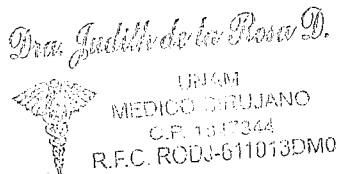 Dra. Judith de la Rosa D.
UNAM
MEDICO CIRUJANO
C.P. 1317344
R.F.C. RODJ-611013DM0